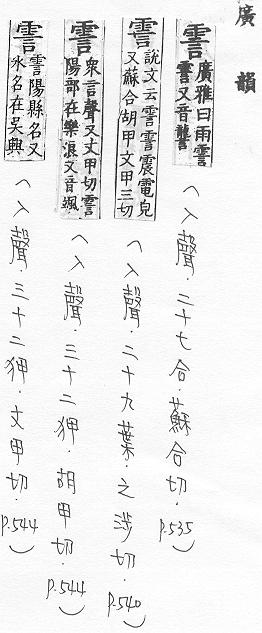 廣韻
霅 廣雅曰雨霅
霅又音讋
(入聲.二十七合.蘇合切.p.535)
霅 說文云霅霅震電皃
又蘇合胡甲文甲三切
(入聲.二十九葉.之涉切.p.540)
霅 衆言聲又丈甲切霅
陽部在樂浪又音颯
(入聲.三十二狎.胡甲切.p.544)
霅 霅陽縣名又
水名在吳興
(入聲.三十二狎.文甲切.p.544)